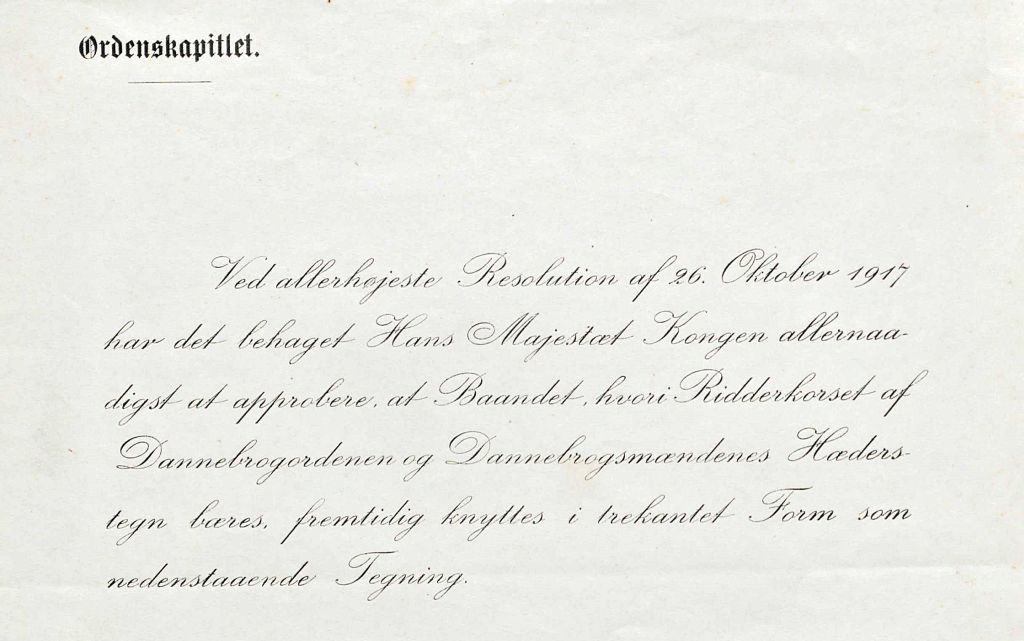 Ordenskapitlet.
Ved allerhøjeste Resolution af 26. Oktober 1917
har det behaget Hans Majestæt Kongen allernaa-
digst at approbere, at Baandet, hvori Ridderkorset af
Dannebrogordenen og Dannebrogsmændenes Hæders-
tegn bæres, fremtidig knyttes i trekantet Form som
nedenstaaende Tegning.